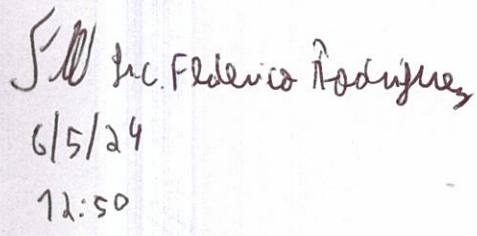 Lic. Federico Rodríguez
6/5/24
12:50